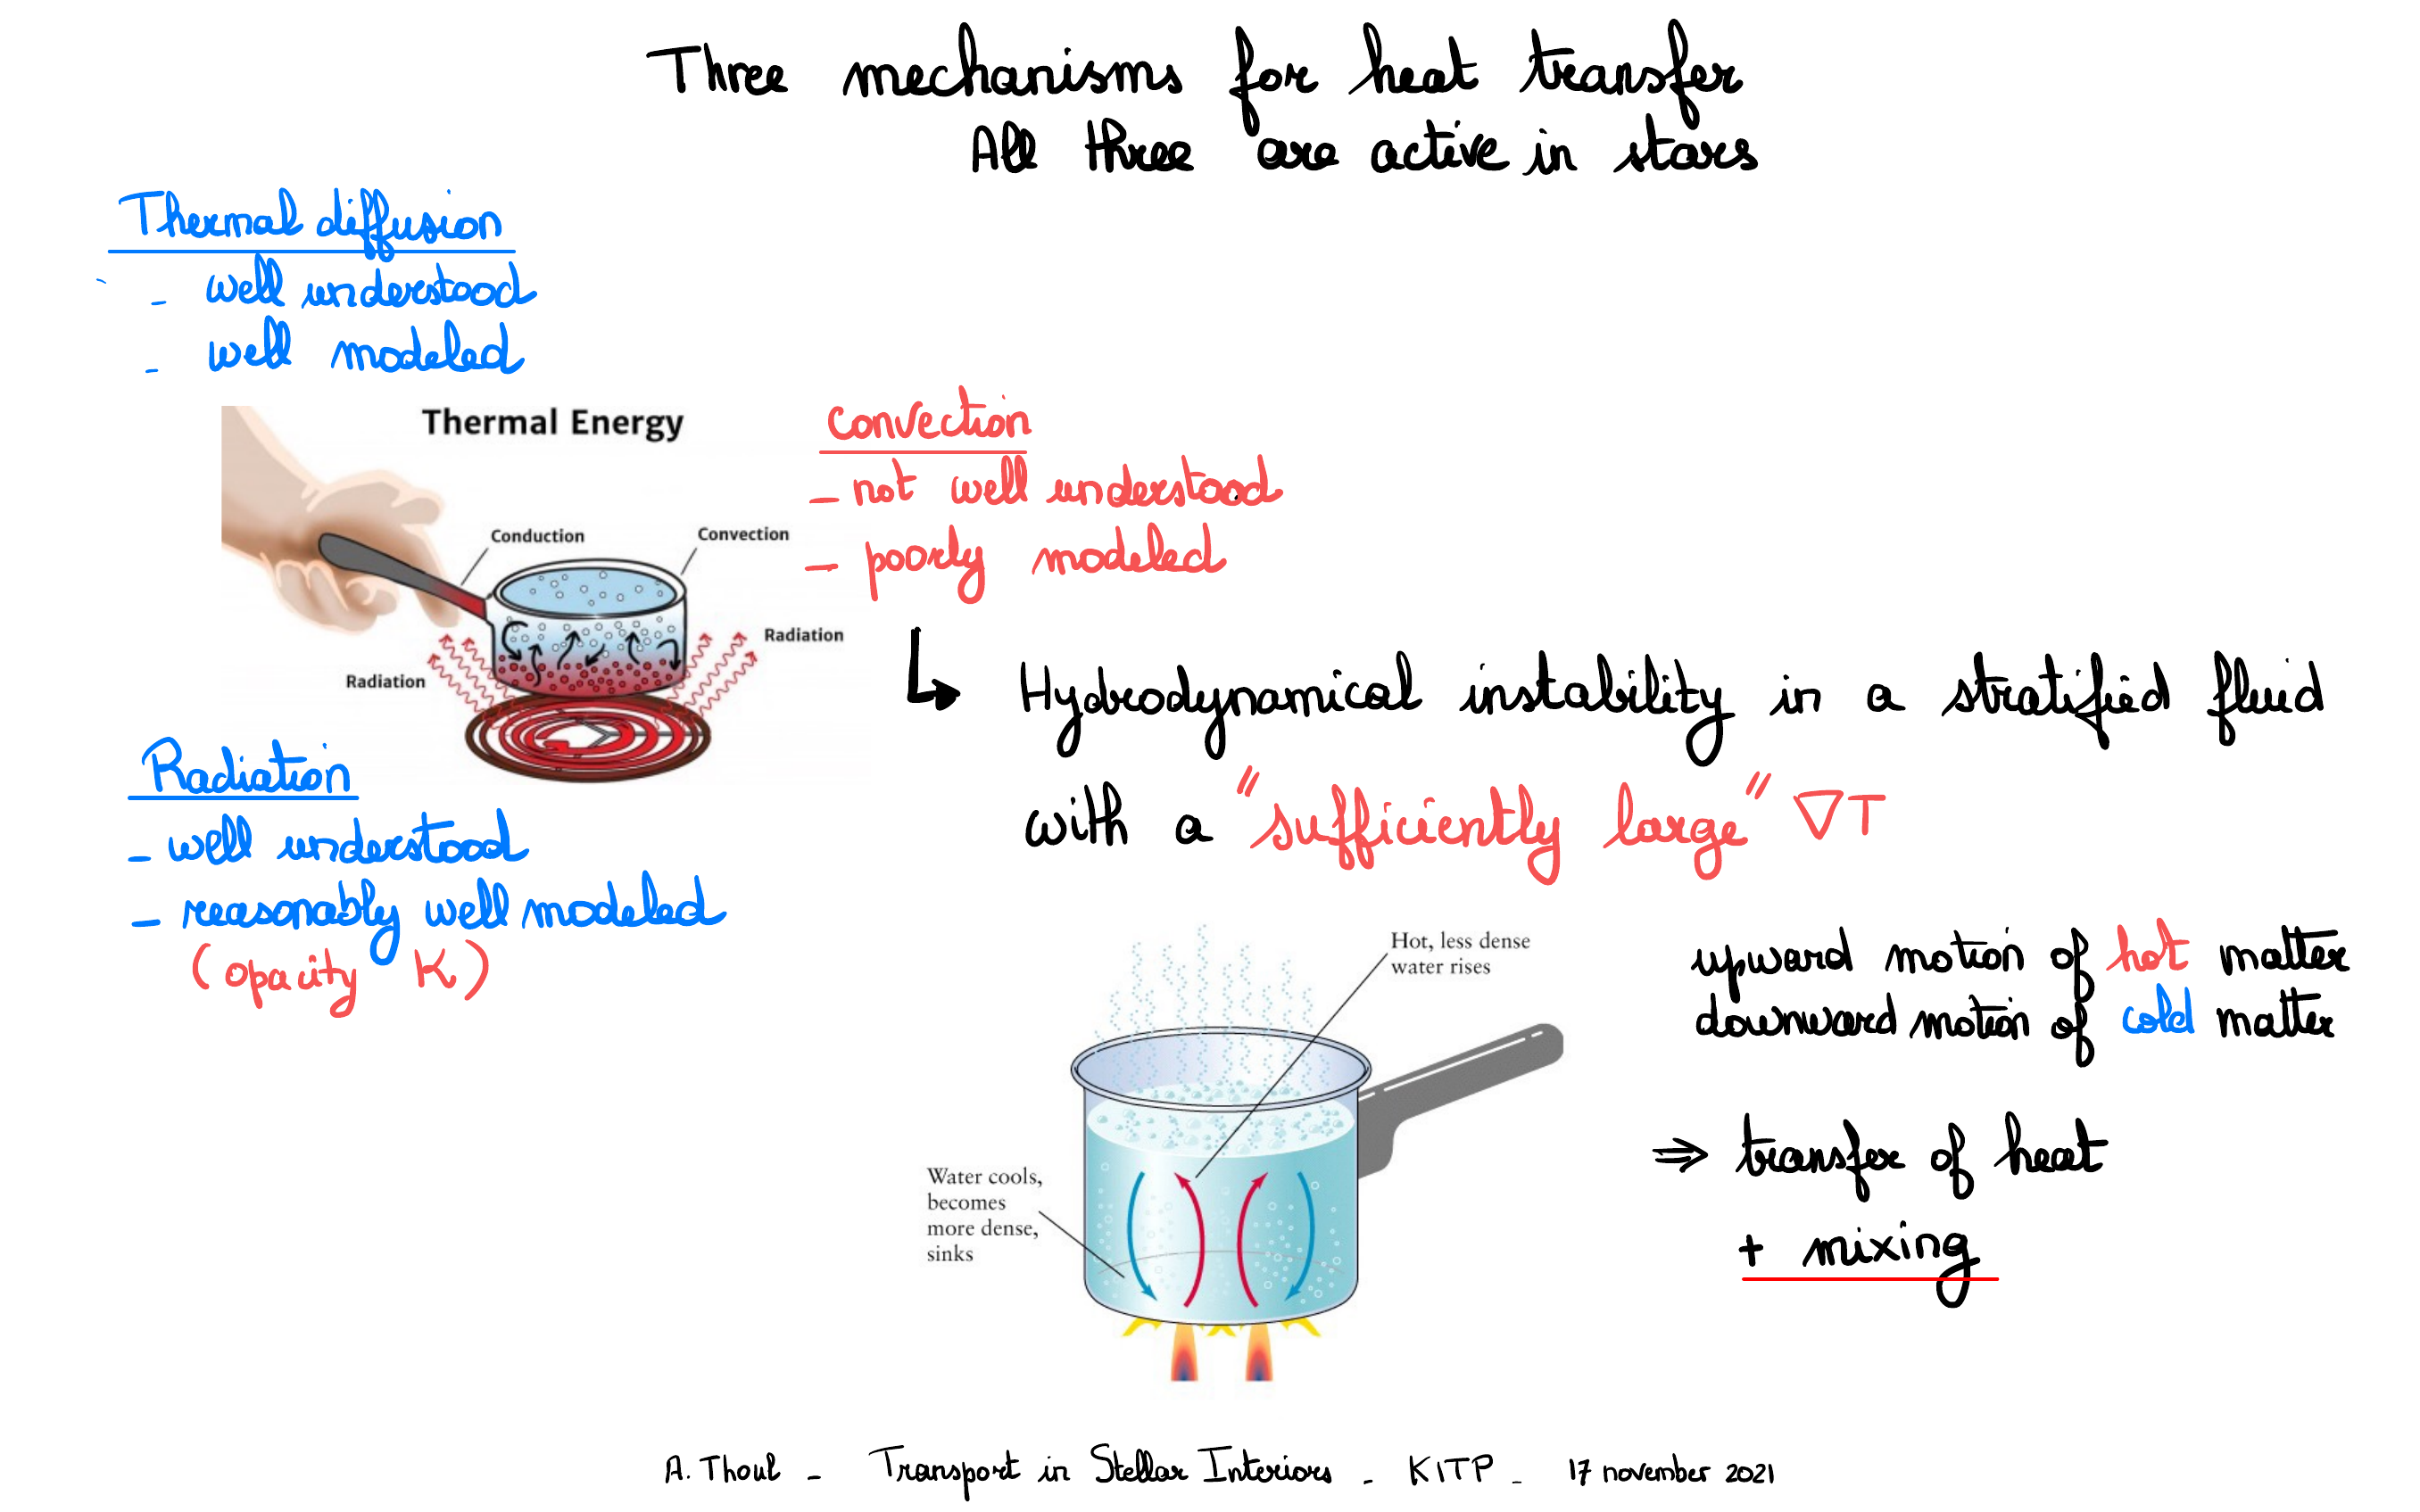 Three mechanisms for heat transfer
All three are active in stars
Thermal diffusion
- well understood
- well modeled
Thermal Energy
Conduction
Convection
Radiation
Radiation
Convection
- not well understood
- poorly modeled
Radiation
- well understood
- reasonably well modeled
(opacity K)
↳ Hydrodynamical instability in a stratified fluid
with a "sufficiently large" ∇T
Hot, less dense
water rises
Water cools,
becomes
more dense,
sinks
upward motion of hot matter
downward motion of cold matter
⇒ transfer of heat
+ mixing
A. Thoul - Transport in Stellar Interiors - KITP - 17 november 2021